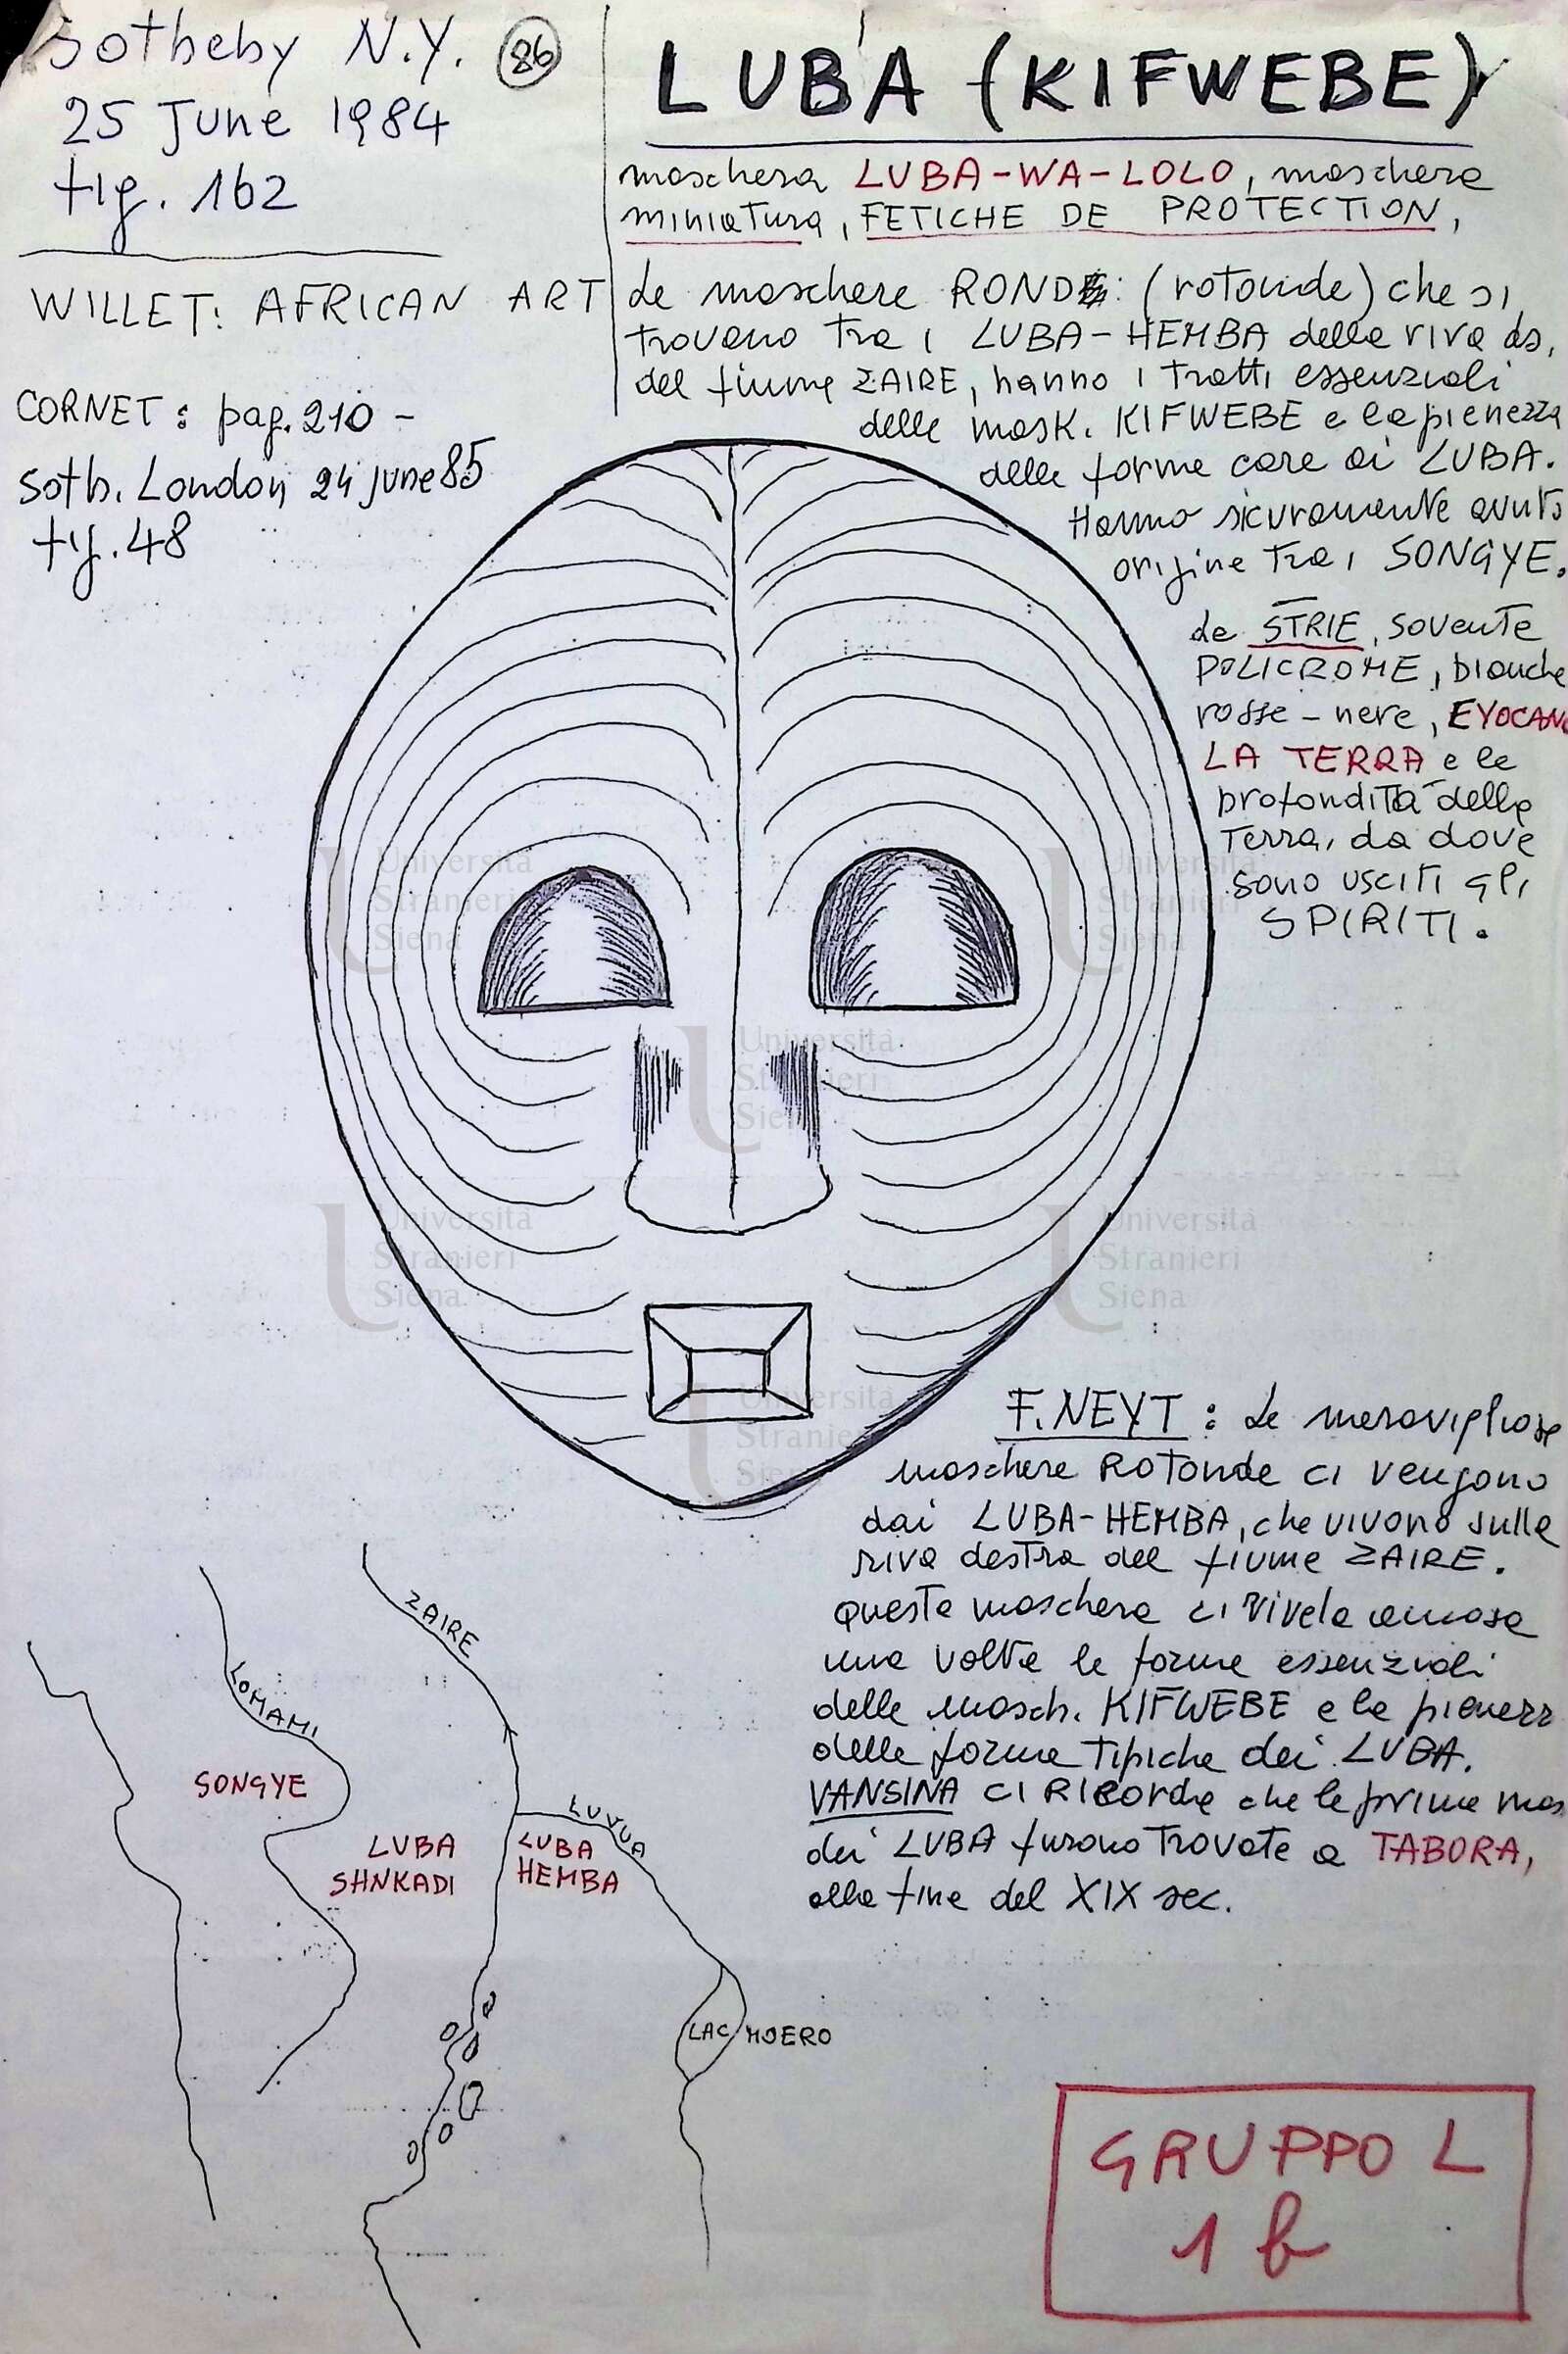 Sotheby N.Y. 86
25 June 1984
fig. 162
WILLET: AFRICAN ART
CORNET: pag. 210 -
Soth. London, 24 june 85
fig. 48
LUBA (KIFWEBE)
maschera LUBA-WA-LOLO, maschera
miniatura, FETICHE DE PROTECTION,
Le maschere ROND: (rotonde) che si
trovano tra i LUBA-HEMBA della riva ds,
del fiume ZAIRE, hanno i tratti essenziali
delle mask. KIFWEBE e la pienezza
delle forme care ai LUBA.
Hanno sicuramente avuto
origine tra i SONGYE.
Le STRIE, sovente
POLICROME, bianche
rosse - nere, EVOCANO
LA TERRA e le
profondità della
Terra, da dove
sono usciti gli
SPIRITI.
F. NEYT: Le meravigliose
maschere ROTONDE ci vengono
dai LUBA-HEMBA, che vivono sulla
riva destra del fiume ZAIRE.
Questa maschera ci rivela ancora
una volta le forme essenziali
delle masch. KIFWEBE e la pienezz
delle forme tipiche dei LUBA.
VANSINA CI RICORDA che le prime mas
dei LUBA furono trovate a TABORA,
alla fine del XIX sec.
ZAIRE
LOMAMI
SONGYE
LUVUA
LUBA
SHNKADI
LUBA
HEMBA
LAC MOERO
GRUPPO L
1 b
Università
Stranieri
Siena
Università
Stranieri
Siena
Università
Stranieri
Siena
Università
Stranieri
Siena
Università
Stranieri
Siena
Università
Stranieri
Siena